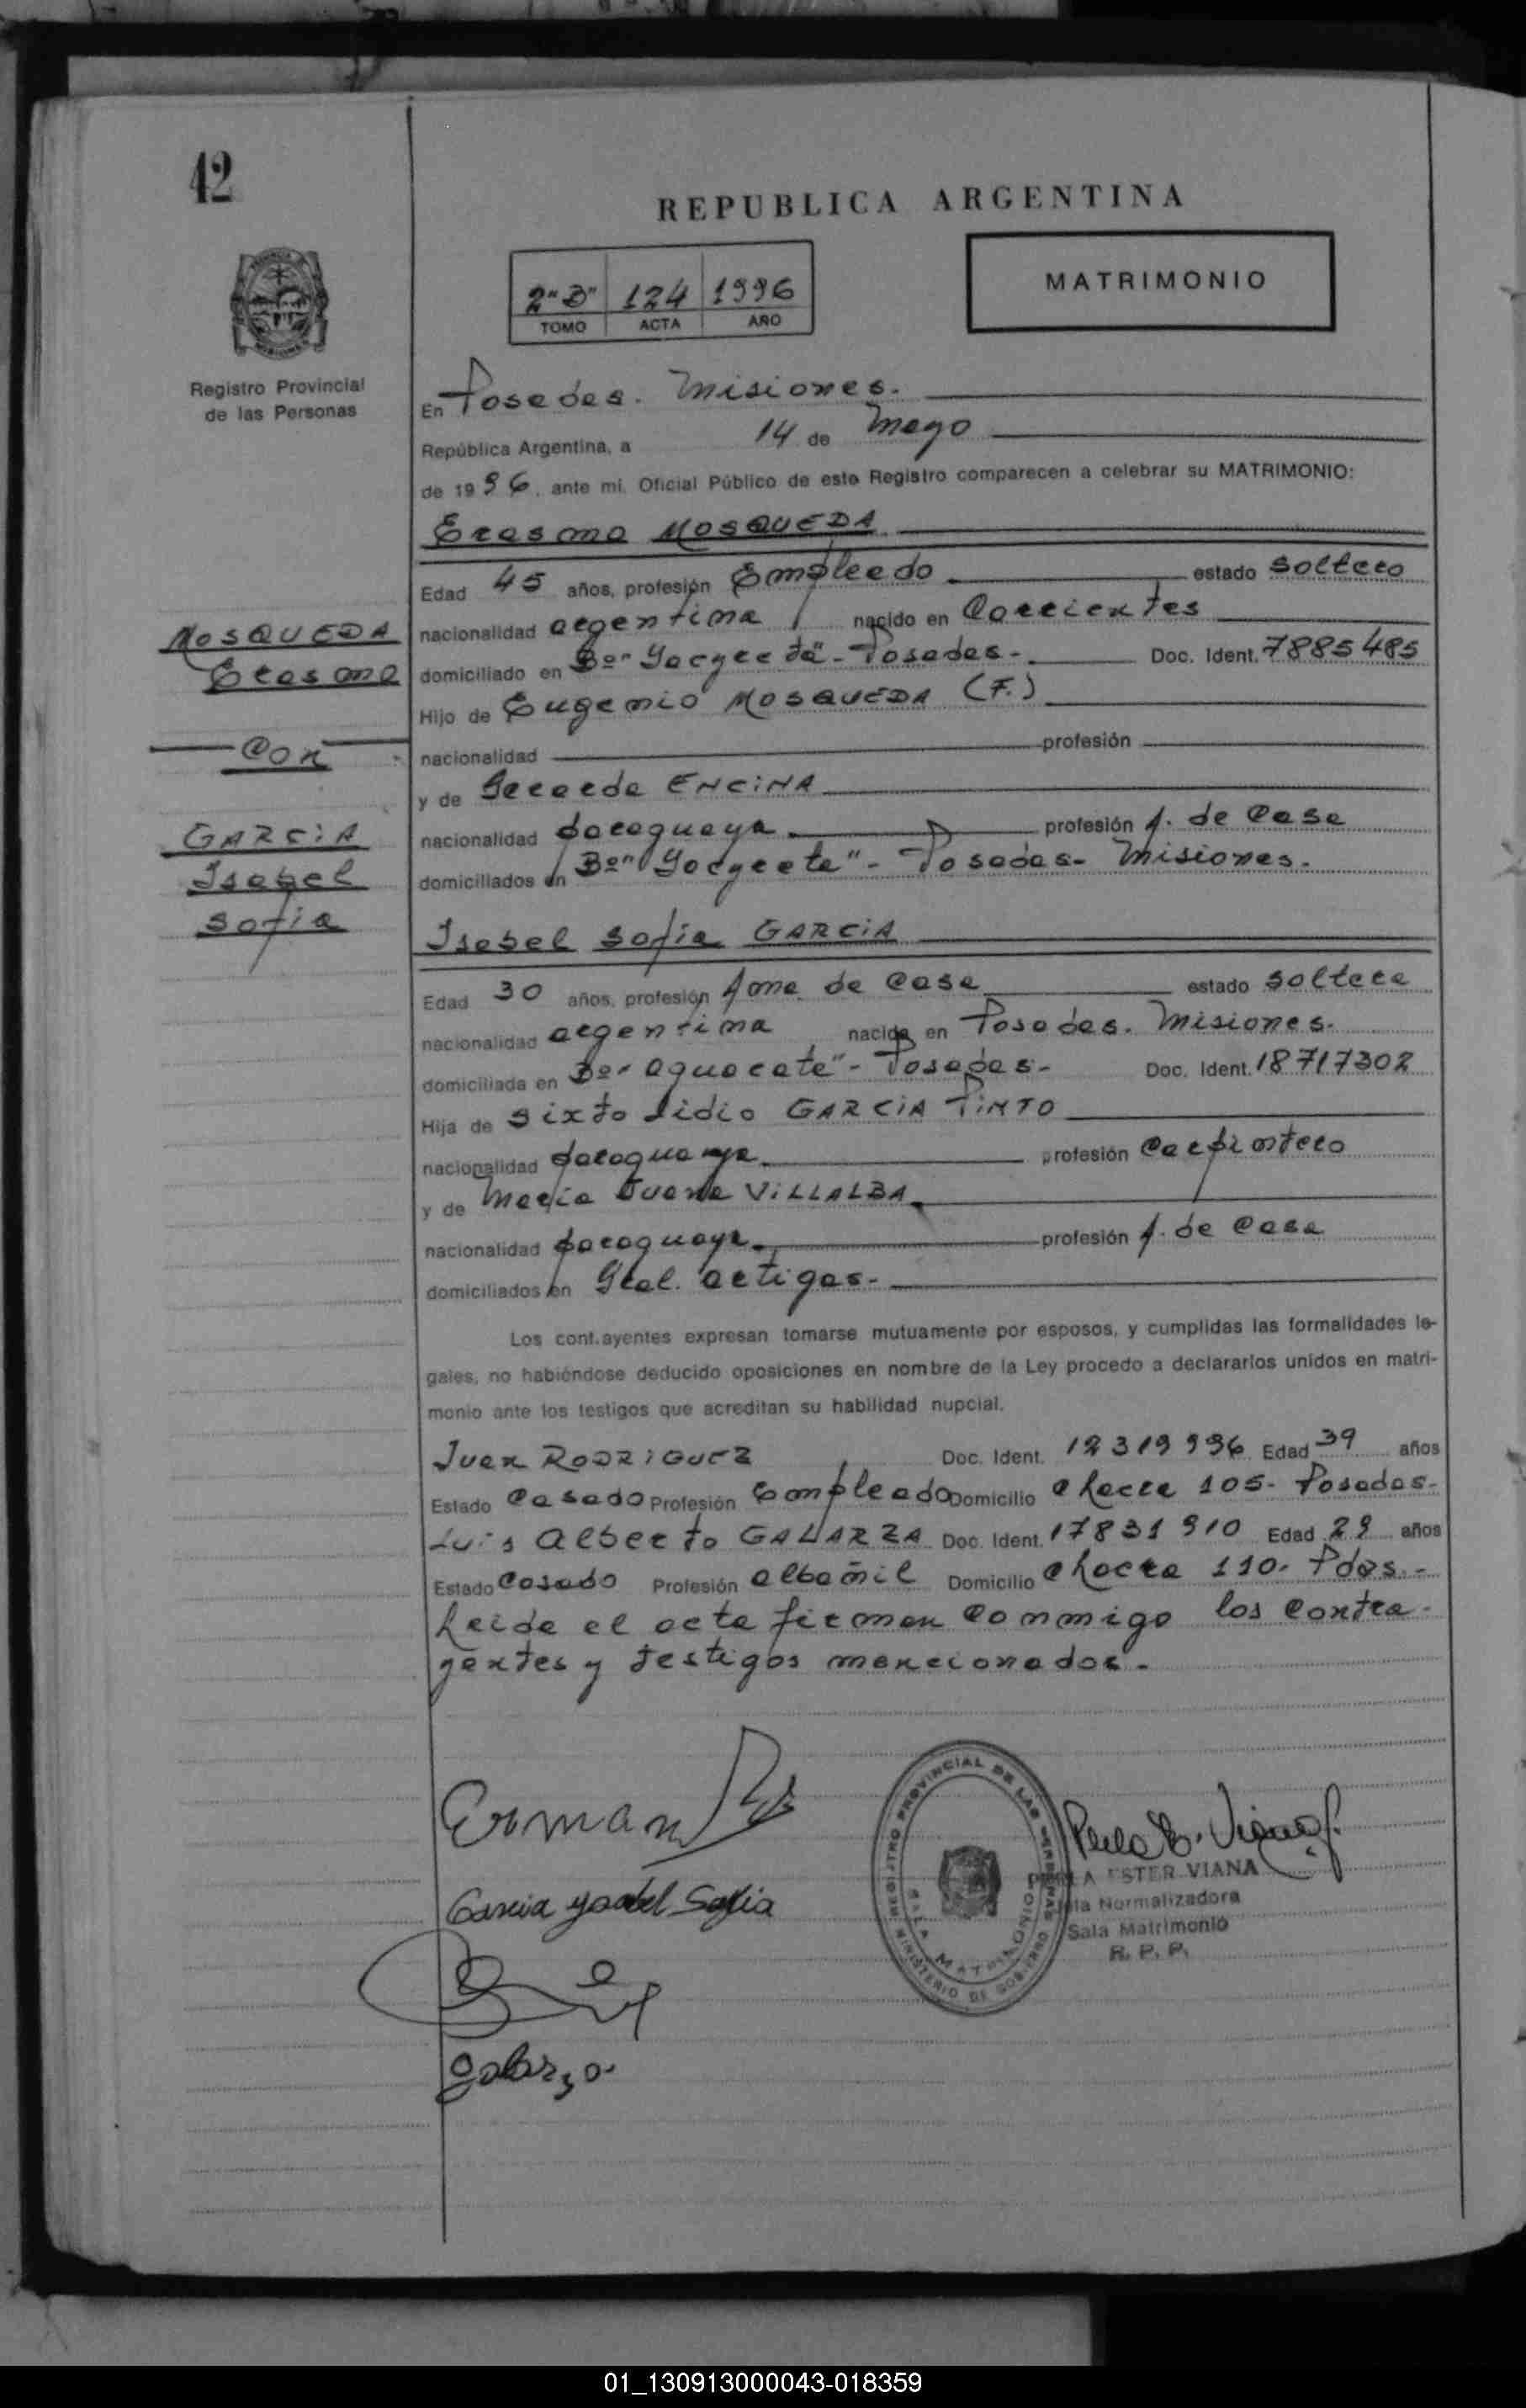 42
REPUBLICA ARGENTINA
2"B" 124 1996
TOMO ACTA AÑO
MATRIMONIO
Registro Provincial
de las Personas
En Posadas. Misiones.
República Argentina, a 14 de Mayo
de 1996, ante mi, Oficial Público de este Registro comparecen a celebrar su MATRIMONIO:
Erasmo MOSQUEDA
Edad 45 años, profesión Empleado estado soltero
nacionalidad argentina nacido en Corrientes
domiciliado en Bº "Yacyreta" - Posadas - Doc. Ident. 7885485
Hijo de Eugenio MOSQUEDA (F.)
nacionalidad profesión
y de Gerarda ENCINA
nacionalidad paraguaya profesión A. de Casa
domiciliados en Bº "Yacyreta" - Posadas - Misiones.
MOSQUEDA
Erasmo
Con
GARCIA
Isabel
Sofia
Isabel Sofia GARCIA
Edad 30 años, profesión Ama de Casa estado soltera
nacionalidad argentina nacida en Posadas. Misiones.
domiciliada en Bº "Aguacate" - Posadas - Doc. Ident. 18717302
Hija de Sixto Lidio GARCIA PINTO
nacionalidad paraguaya profesión Carpintero
y de Maria Juana VILLALBA
nacionalidad paraguaya profesión A. de Casa
domiciliados en Gral. Artigas -
Los contrayentes expresan tomarse mutuamente por esposos, y cumplidas las formalidades le-
gales, no habiéndose deducido oposiciones en nombre de la Ley procedo a declararlos unidos en matri-
monio ante los testigos que acreditan su habilidad nupcial.
Juan RODRIGUEZ Doc. Ident. 12319996 Edad 39 años
Estado Casado Profesión Empleado Domicilio Chacra 105 - Posadas -
Luis Alberto GALARZA Doc. Ident. 17831910 Edad 29 años
Estado Casado Profesión albañil Domicilio Chacra 110 - Pdas. -
Leida el acta firman conmigo los contra-
yentes y testigos mencionados -
Garcia Ysabel Sofia
Galarza
REGISTRO PROVINCIAL DE LAS PERSONAS
SALA MATRIMONIO
MINISTERIO DE GOBIERNO
PERLA ESTER VIANA
Normalizadora
Sala Matrimonio
R. P. P.
01_130913000043-018359